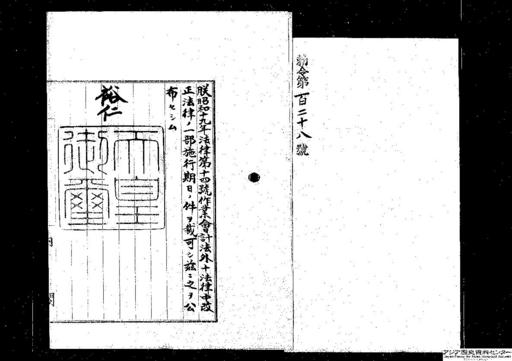 勅令第一百二十八號
朕昭和十九年法律第十四號作業會計法外十法律中改
正法律ノ一部施行期日ノ件ヲ裁可シ茲ニ之ヲ公
布セシム
裕仁
天皇
御璽
アジア歴史資料センター